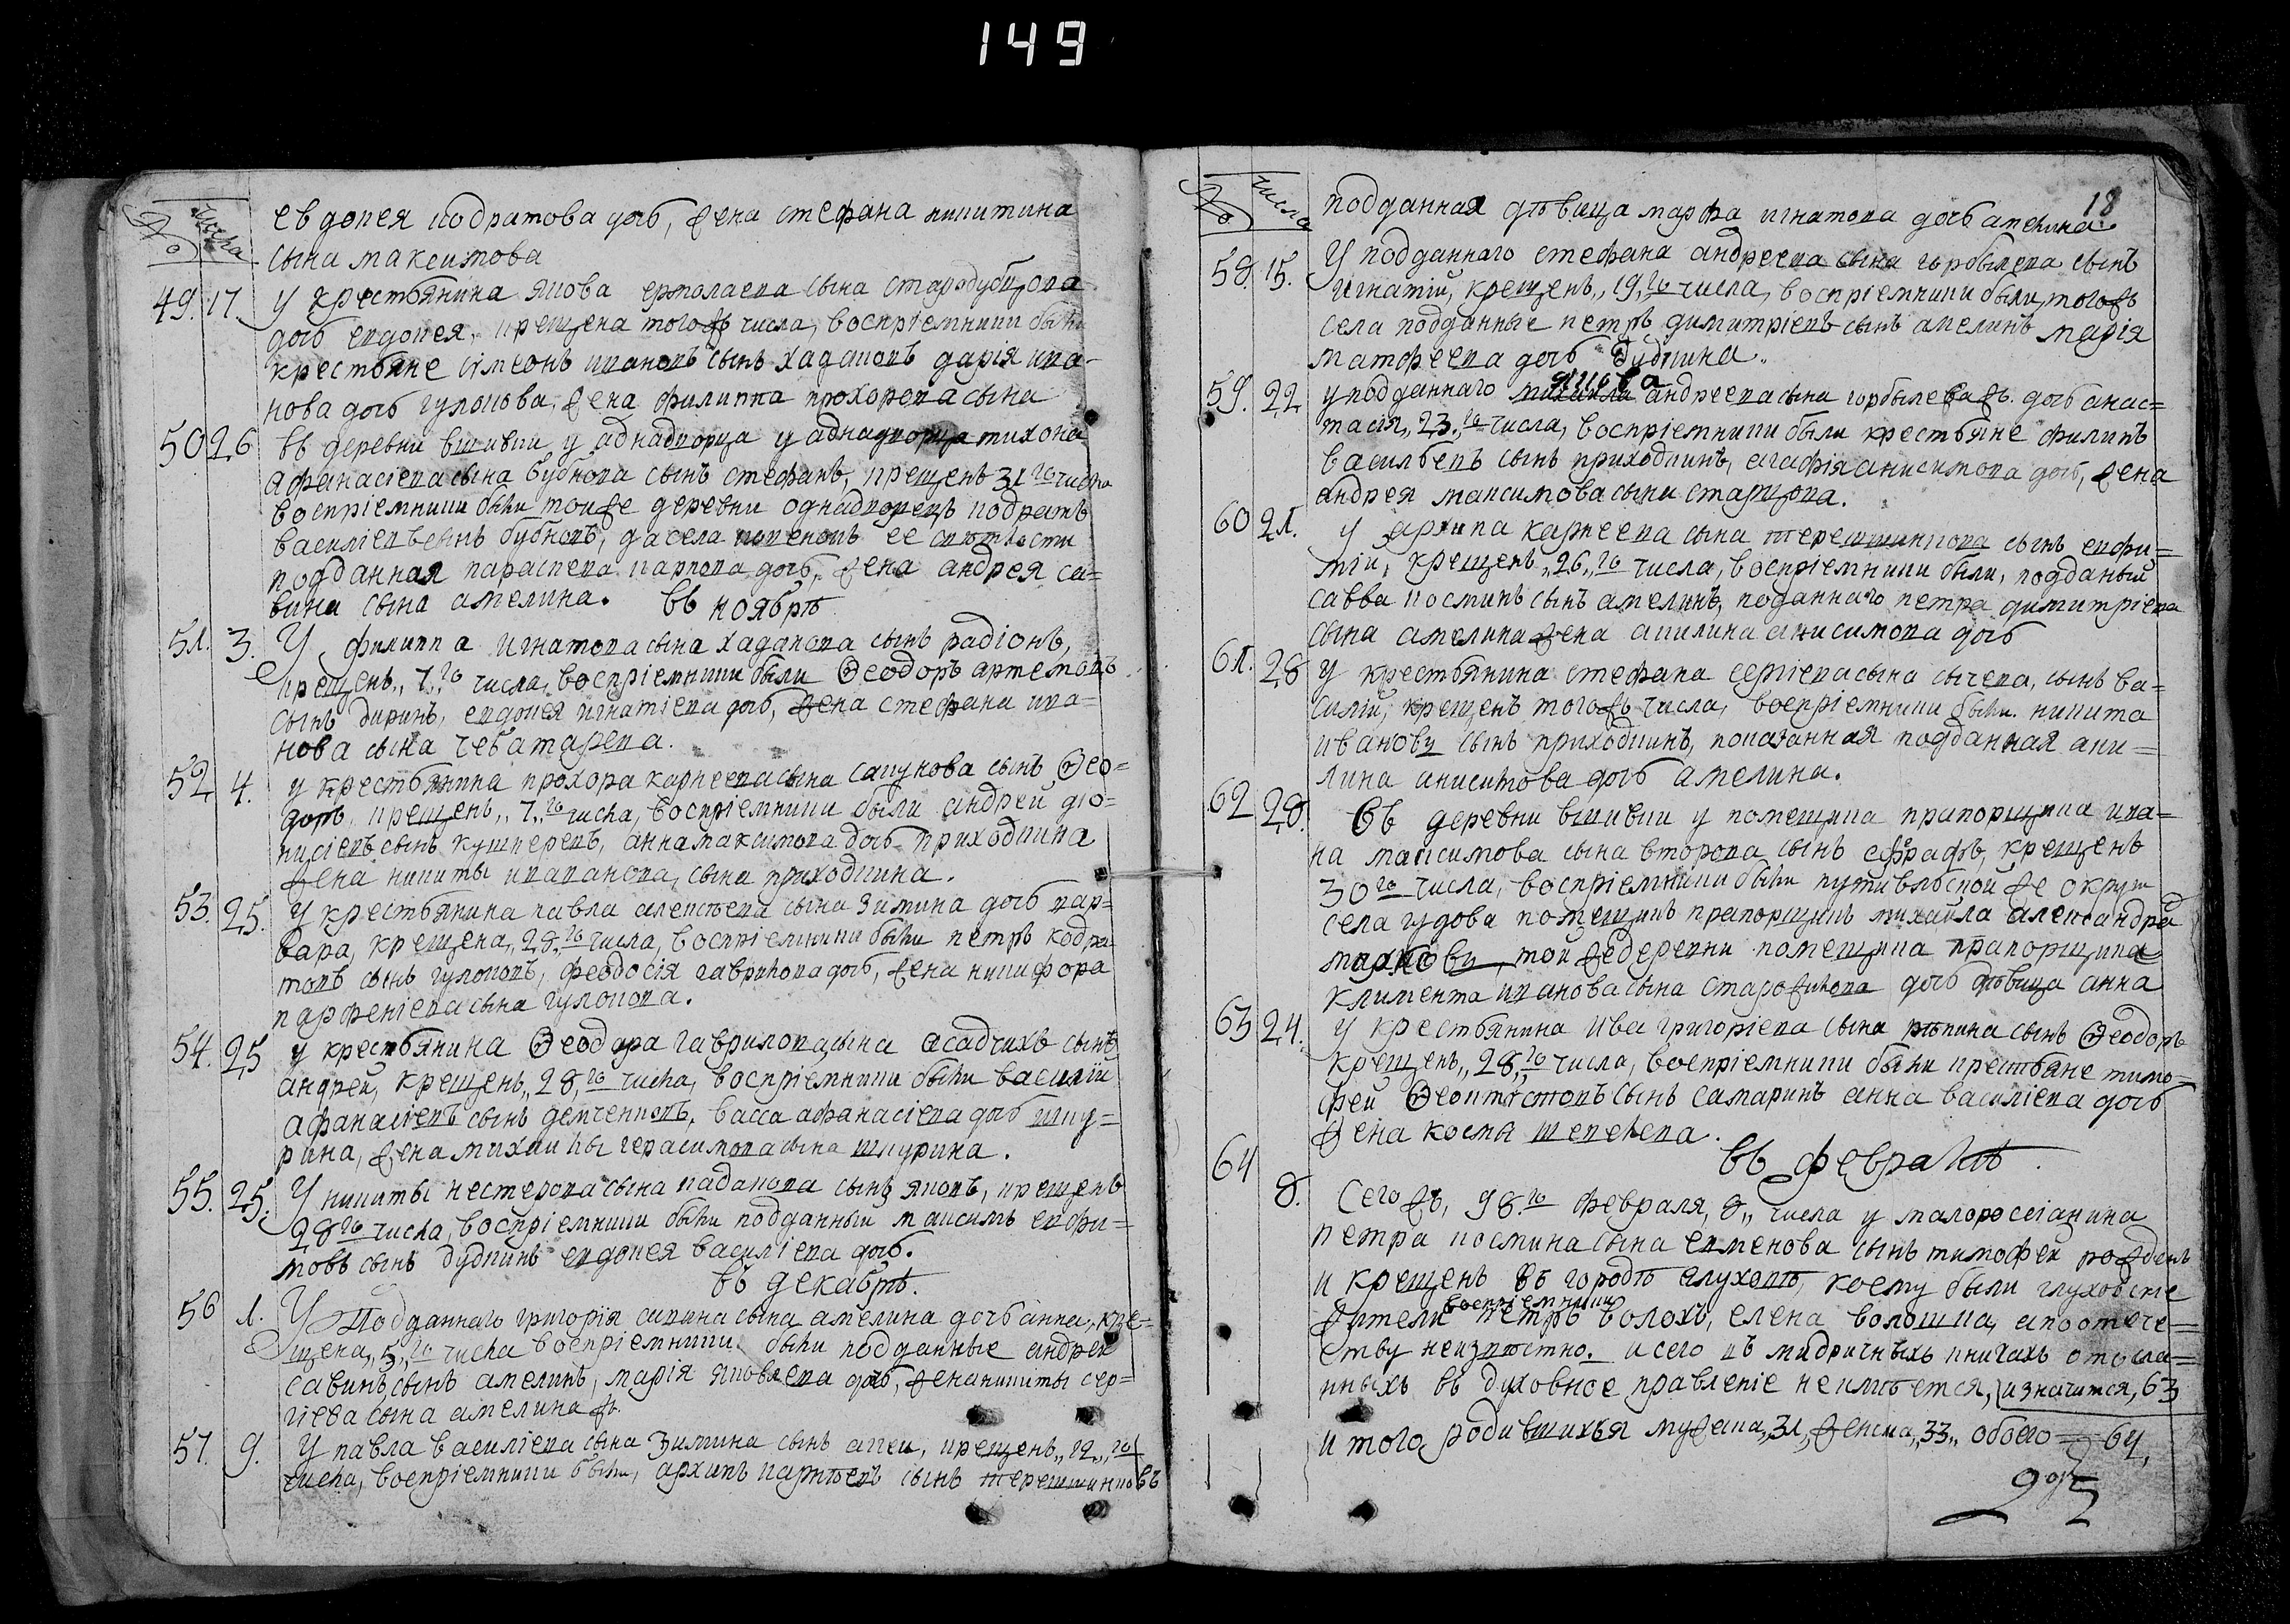 149
№ числа
евдокея кодратова дочь, жена стефана никитина
сына максимова
49. 17. У крестьянина якова ермолаева сына стародубцова
дочь евдокея, крещена тогожъ числа, воспріемники были
крестьяне сімеонъ ивановъ сынъ хадаковъ дарія ива-
нова дочь гулокова, жена филиппа прохорева сына
50 26 въ деревни вшивки у аднадворца у аднадворца тихона
афанасіева сына бубнова сынъ стефанъ, крещенъ 31 го числа
воспріемники были тоиже деревни однадворецъ кодратъ
василіевъ сынъ бубновъ, да села
подданная параскева карпова дочь, жена андрея са=
вина сына амелина. въ ноябрѣ
51. 3. У филиппа игнатова сына хадакова сынъ радіонъ,
крещенъ,, 7,, го числа, воспріемники были Ѳеодоръ артемовъ
сынъ диринъ, евдокея игнатіева дочь, жена стефана ива=
нова сына чеботарева.
52 4. у крестьянина прохора карнеева сына сапунова сынъ Ѳео=
доръ, крещенъ,, 7,, го числа, воспріемники были андрей дио=
нисіевъ сынъ кушнеревъ, анна максимова дочь приходкина
жена никиты ивановa, сына приходкина.
53. 25. У крестьянина павла алексѣева сына Зимина дочь вар=
вара, крещена,, 28,, го числа, воспріемники были петръ кодра-
товъ сынъ гулоковъ, феодосія гаврилова дочь, жена никифора
парфеніева сына гулокова.
54. 25 у крестьянина Ѳеодора гаврилова сына асадчихъ сынъ
андрей, крещенъ,, 28,, го числа, воспріемники были василій
афанасіевъ сынъ демченковъ, васса афанасіева дочь шку=
рина, жена михаилы герасимова сына шкурина.
55. 25. У никиты нестерова сына кадакова сынъ яковъ, крещенъ
28 го числа, воспріемники были подданный максимъ евфи=
мовъ сынъ дудкинъ евдокея василіева дочь.
въ декабрѣ.
56 1. У Подданнаго григорія савина сына амелина дочь анна, кре=
щена,, 5,, го числа воспріемники были подданные андрей
савинъ сынъ амелинъ, марія яковлева дочь, жена никиты сер=
гіева сына амелина жъ
57. 9. У павла василіева сына Зимина сынъ аггеи, крещенъ,, 12,, го
числа, воспріемники были, архипъ карнѣевъ сынъ терешшинковъ
18
№ числа
подданная дѣвица марфа игнатова дочь амелина.
58. 15. У подданнаго стефана андреева сына горбылева сынъ
игнатій, крещенъ,, 19,, го числа, воспріемники были, тогожъ
села подданные петръ димитріевъ сынъ амелинъ марія
матфеева дочь дудкина..
59. 22 у подданнаго якова андреева сына горбылеважъ. дочь анас=
тасія,, 23,, го числа, воспріемники были крестьяне филипъ
васильевъ сынъ приходкинъ, агафія анисимова дочь, жена
андрея максимова сына старцова.
60 21. у архипа карнеева сына терешшинкова сынъ евфи=
мій, крещенъ,, 26,, го числа, воспріемники были, подданый
савва косминъ сынъ амелинъ, подданнаго петра димитріева
сына амелина жена акилина анисимова дочь
61. 28 У крестьянина стефана сергіева сына сычева, сынъ ва=
силій, крещенъ тогожъ числа, воспріемники были никита
ивановъ сынъ приходкинъ, показанная подданная аки=
лина анисимова дочь амелина.
62 28. Въ деревни вшивки у помещика прапорщика ива=
на максимова сына второва сынъ ефрафъ, крещенъ
30 го числа, воспріемники были путивльской же округи
села гудова помещикъ прапорщикъ михайла александра
марковъ, той же деревни помещика прапорщика
климента иванова сына старожилова дочь дѣвица анна
63 24. у крестьянина ива григоріева сына рѣпина сынъ Ѳеодоръ
крещенъ,, 28,, го числа, воспріемники были крестьяне тимо-
фей Ѳеоктистовъ сынъ самаринъ анна василіева дочь
жена косма шевелева.
въ февралѣ.
64 8. Сегожъ, 98. го февраля, 8,, числа у малороссіанина
петра космина сына еменова сынъ тимофей рожденъ
и крещенъ въ городѣ глуховѣ, коему были глуховскіе
жители воспріемники петръ волохъ, елена волошка, а по отече=
ству неизвѣстно. и сего въ мидричныхъ книгахъ отосла=
нныхъ въ духовное правленіе неимѣется, изначится, 63
итого родившихся мужеска,, 31, женска,, 33,, обоего = 64,